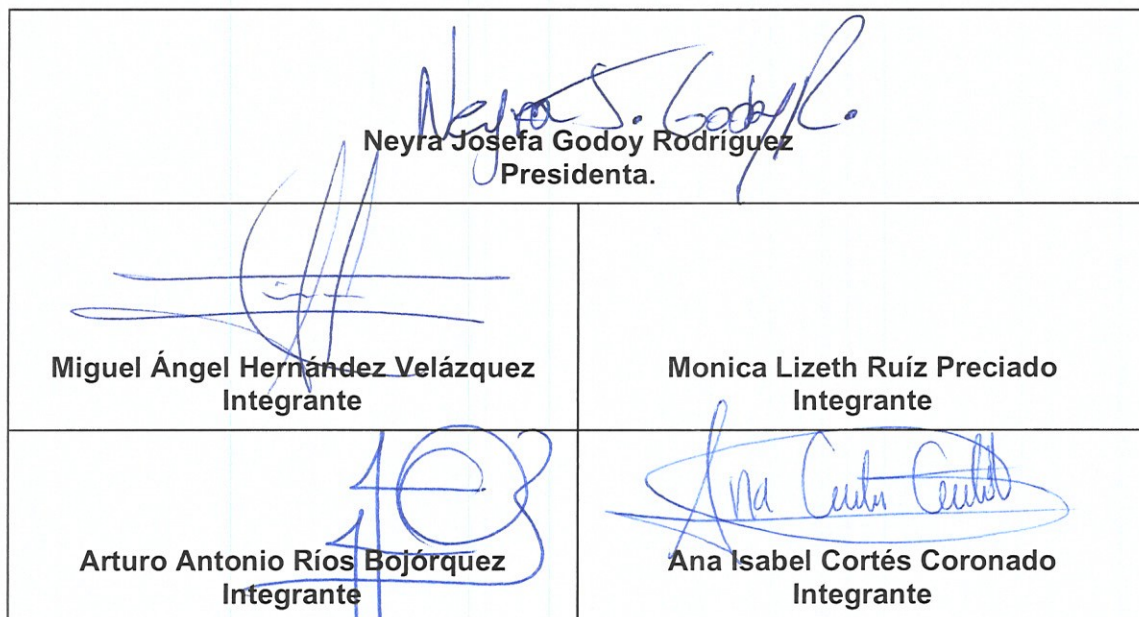 Neyra J. Godoy R.
Neyra Josefa Godoy Rodríguez
Presidenta.
Miguel Ángel Hernández Velázquez
Integrante
Monica Lizeth Ruíz Preciado
Integrante
Arturo Antonio Ríos Bojórquez
Integrante
Ana
Ana Isabel Cortés Coronado
Integrante